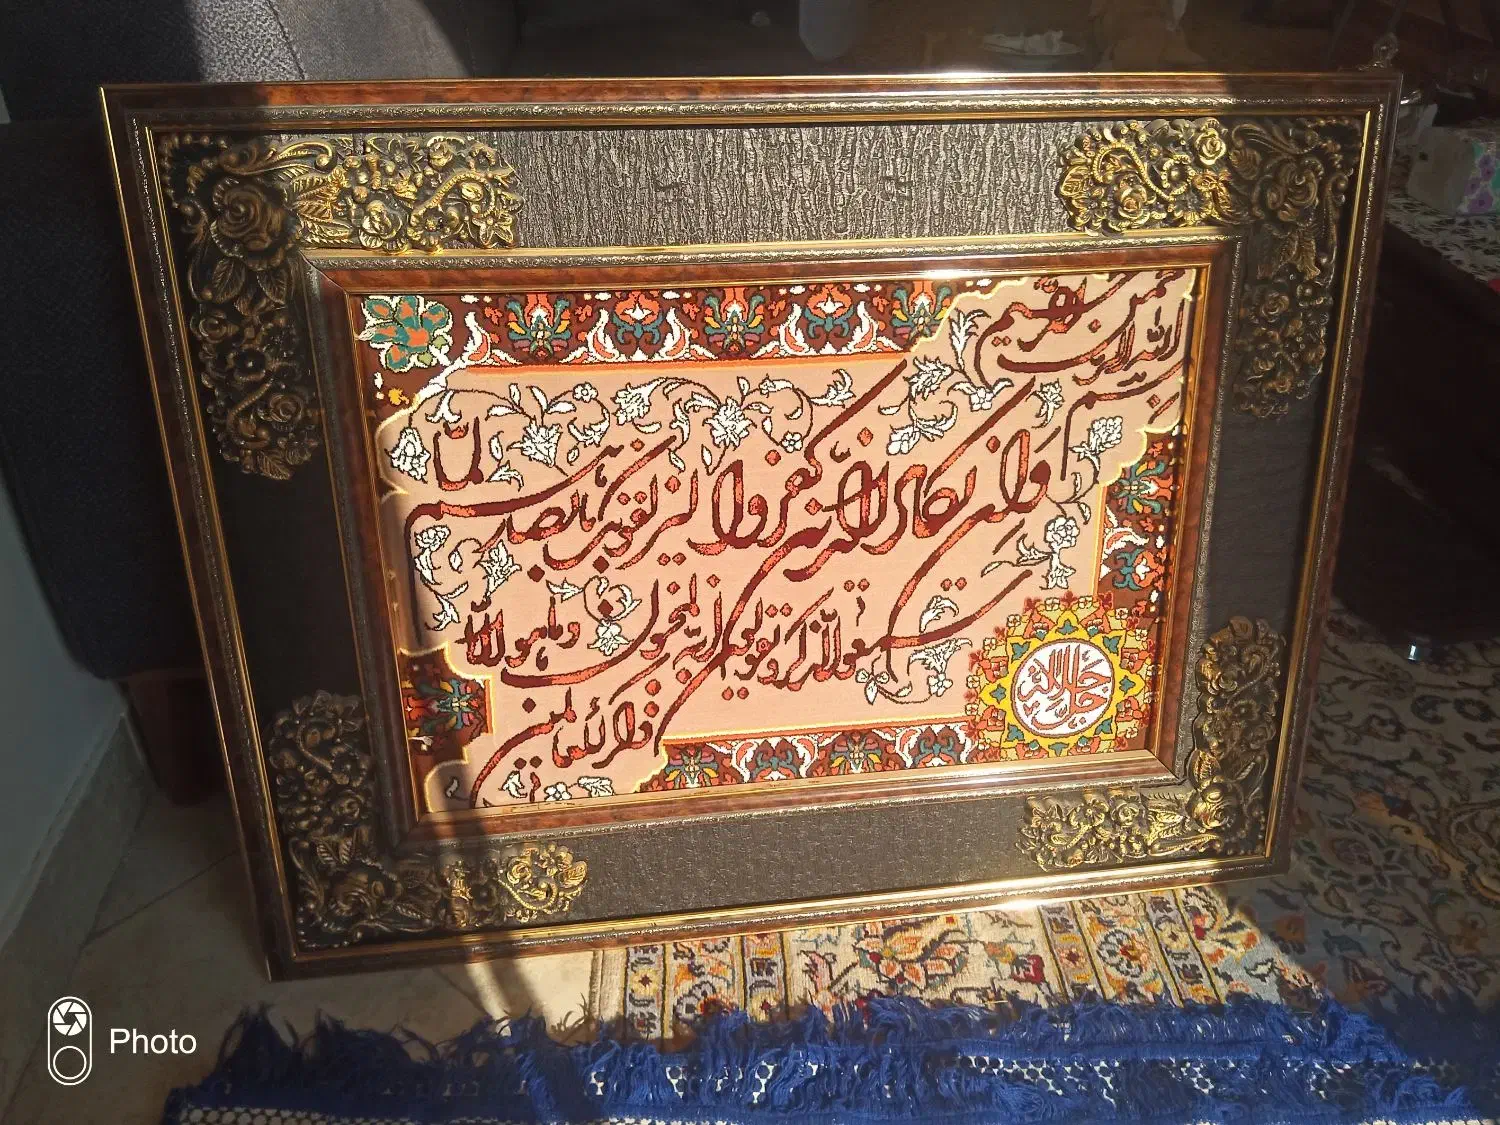 بسم الله الرحمن الرحیم
وان یکاد الذین کفروا لیزلقونک بابصارهم لما
سمعوا الذکر و یقولون انه لمجنون و ما هو الا
ذکر للعالمین
جل جلاله
Photo